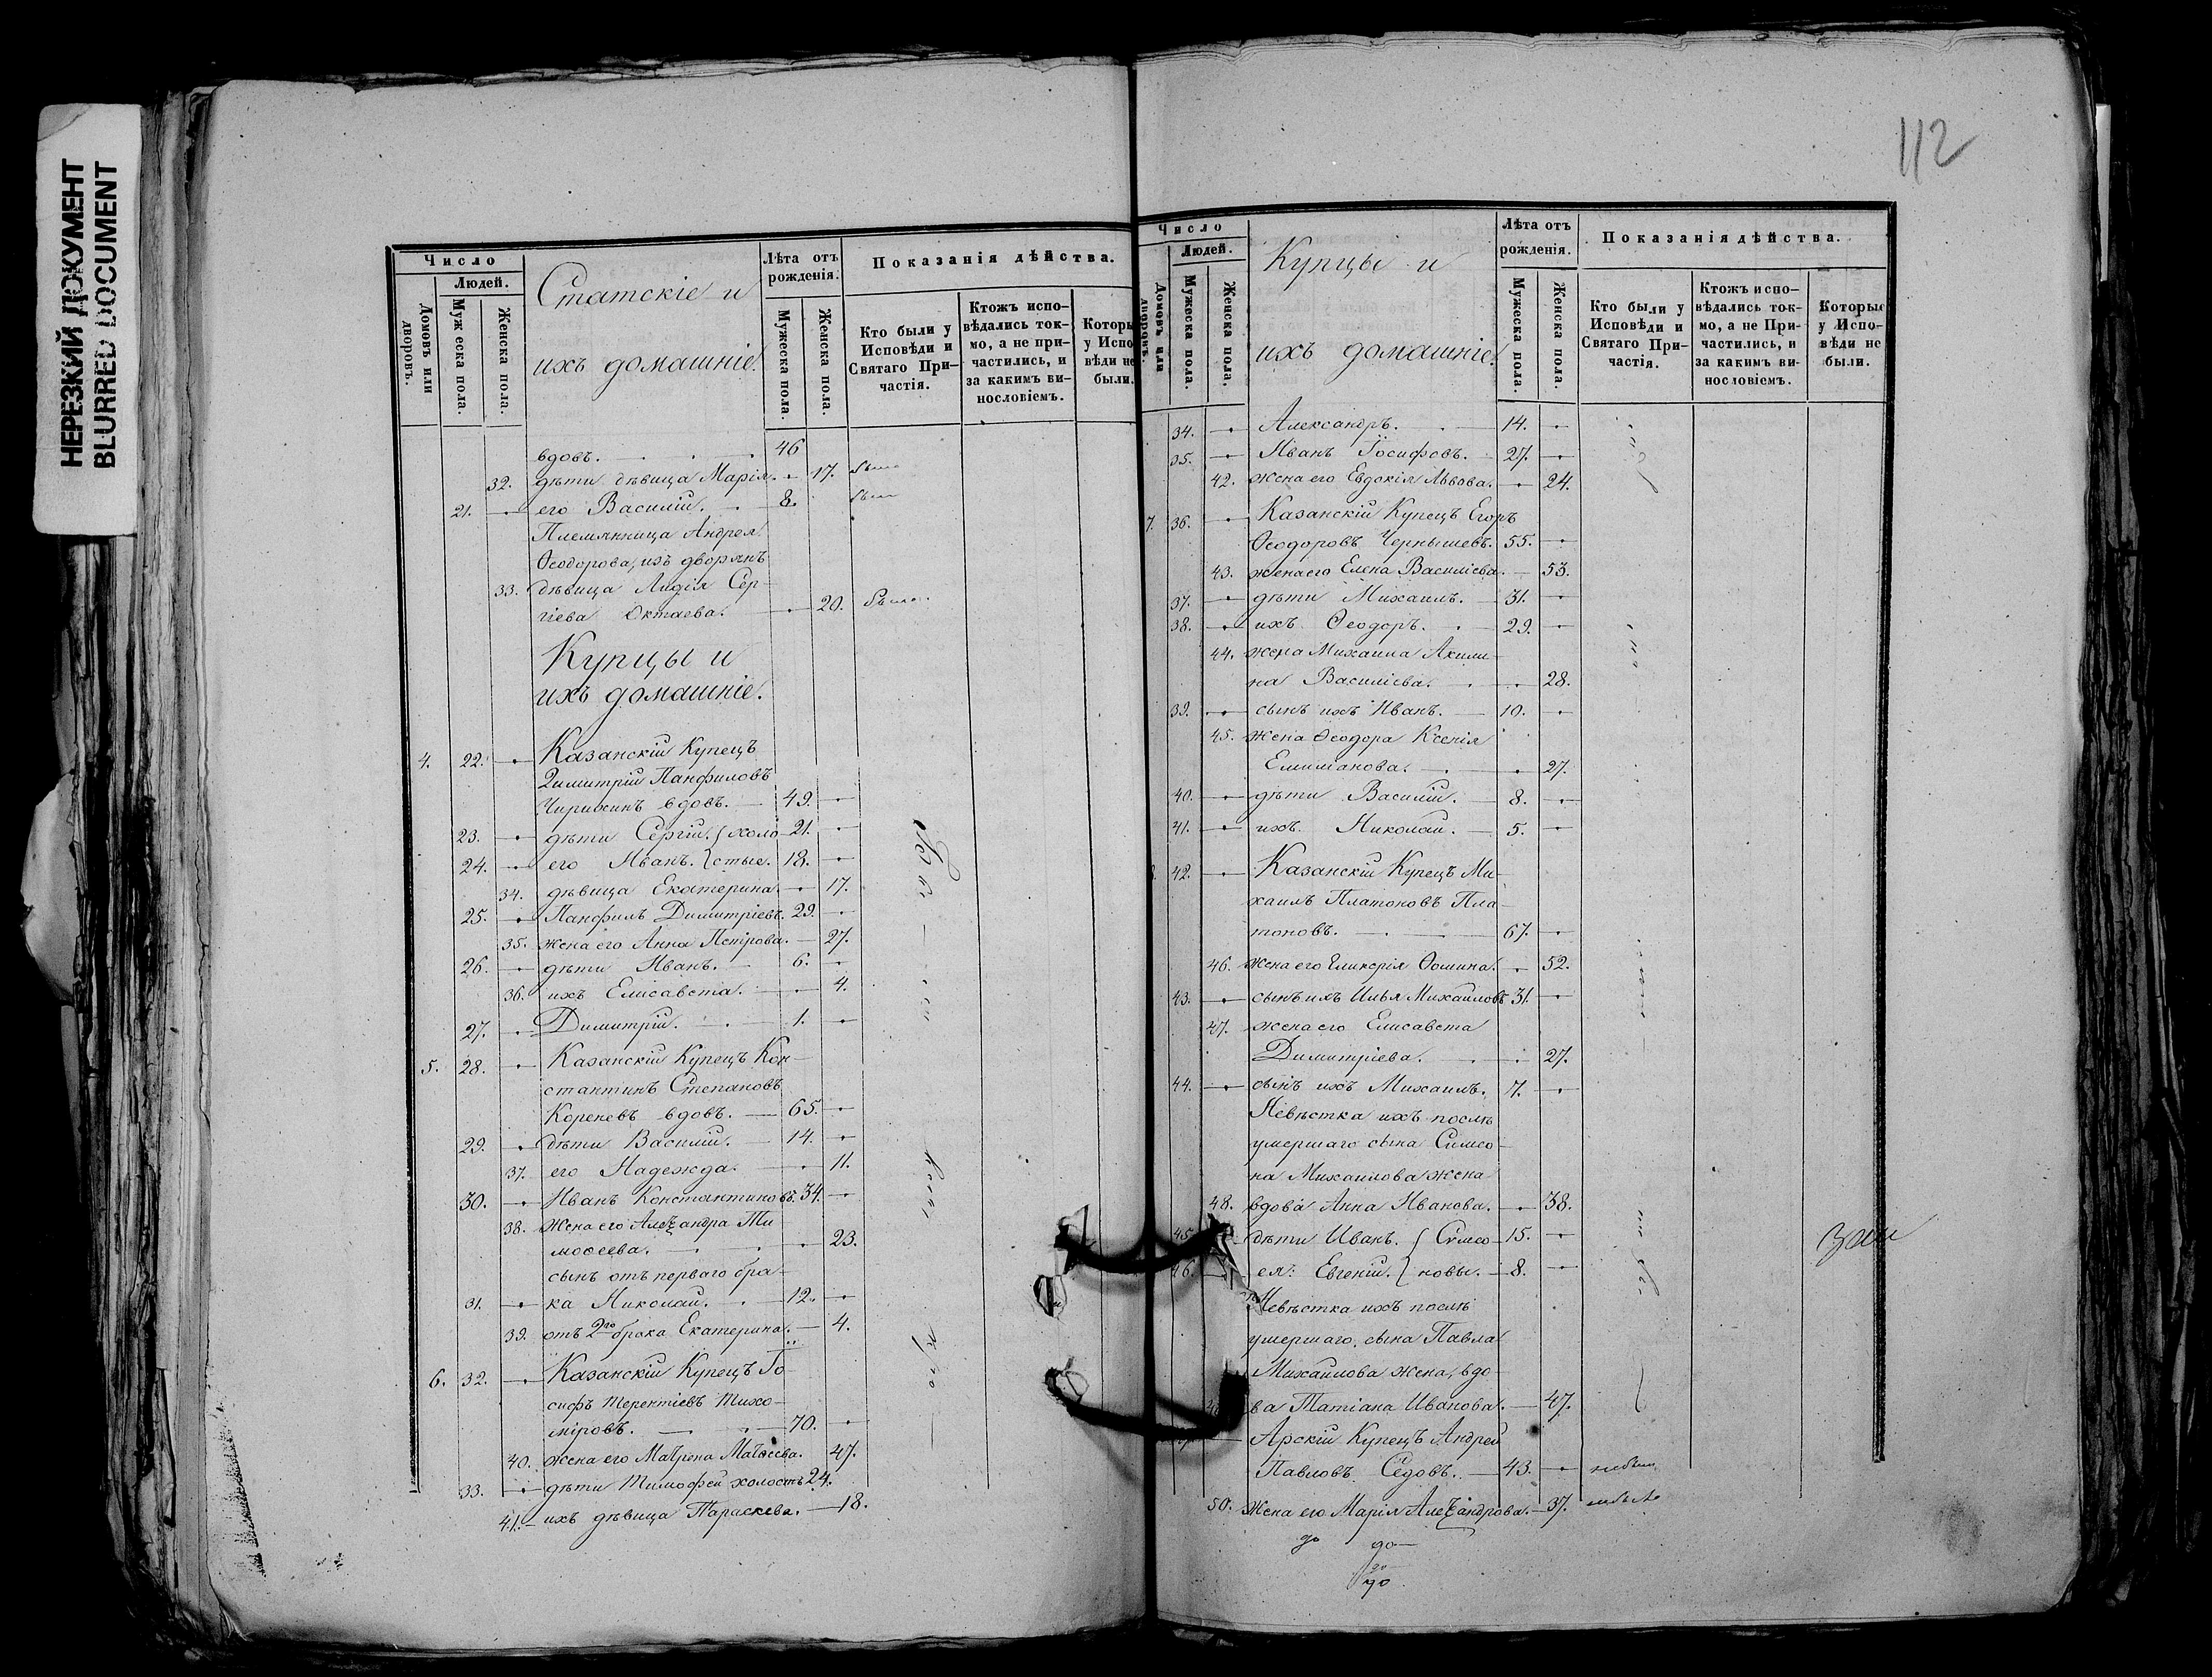 НЕРЕЗКИЙ ДОКУМЕНТ
BLURRED DOCUMENT
Число
Людей.
Домовъ или дворовъ.
Мужеска пола.
Женска пола.
Статскіе и
ихъ домашніе.
Лѣта отъ рожденія.
Мужеска пола.
Женска пола.
Показанія дѣйства.
Кто были у Исповѣди и Святаго Причастія.
Ктожъ исповѣдались токмо, а не причастились, и за какимъ винословіемъ.
Которы у Испо вѣди не были.
вдовъ. 46
32. дѣти дѣвица Марія. 17. была
21. его Василій. 8. былъ
Племянница Андрея
Ѳеодорова, изъ дворянъ
33. дѣвица Лидія Сер-
гіева Октаева. 20. была.
Купцы и
ихъ домашніе.
4. 22. Казанскій Купецъ
Димитрій Панфиловъ
Чирихинъ вдовъ. 49.
23. дѣти Сергій. { холо- 21.
24. его Иванъ. { стые. 18.
34. дѣвица Екатерина. 17.
25. Панфилъ Димитріевъ. 29.
35. жена его Анна Петрова. 27.
26. дѣти Иванъ. 6.
36. ихъ Елисавета. 4.
27. Димитрій. 1.
5. 28. Казанскій Купецъ Кон-
стантинъ Степановъ
Кореневъ вдовъ. 65.
29. дѣти Василій. 14.
37. его Надежда. 11.
30. Иванъ Константиновъ. 34.
38. Жена его Алеѯандра Ти
моѳеева. 23.
сынъ отъ перваго бра-
31. ка Николай. 12.
39. отъ 2го брака Екатерина. 4.
6. 32. Казанскій Купецъ Іо-
сифъ Терентіевъ Тихо-
міровъ. 70.
40. жена его Матрона Матѳеева. 47.
33. дѣти Тимофей холостъ 24.
41. ихъ дѣвица Параскева. 18.
112
Число
Людей.
Домовъ или дворовъ.
Мужеска пола.
Женска пола.
Купцы и
ихъ домашніе.
Лѣта отъ рожденія.
Мужеска пола.
Женска пола.
Показанія дѣйства.
Кто были у Исповѣди и Святаго Причастія.
Ктожъ исповѣдались токмо, а не Причастились, и за какимъ винословіемъ.
Которые у Исповѣди не были.
34. Александръ. 14.
35. Иванъ Іосифовъ. 27.
42. жена его Евдокія Львова. 24.
7. 36. Казанскій Купецъ Егоръ
Ѳеодоровъ Чернышевъ. 55.
43. жена его Елена Василіева. 53.
37. дѣти Михаилъ. 31.
38. ихъ Ѳеодоръ. 29.
44. жена Михаила Акили-
на Василіева. 28.
39. сынъ ихъ Иванъ. 10.
45. жена Ѳеодора Ксенія
Емиліанова. 27.
40. дѣти Василій. 8.
41. ихъ Николай. 5.
42. Казанскій Купецъ Ми-
хаилъ Платоновъ Пла-
тоновъ. 67.
46. жена его Гликерія Ѳомина. 52.
43. сынъ ихъ Илья Михайловъ 31.
47. жена его Елисавета
Димитріева. 27.
44. сынъ ихъ Михаилъ. 7.
Невѣстка ихъ послѣ
умершаго сына Симео-
на Михайлова жена
48. вдова Анна Иванова. 38.
45. дѣти Иванъ. { Симео- 15.
46. ея: Евгеній. } новы. 8.
Невѣстка ихъ послѣ
умершаго сына Павла
Михайлова жена, вдо-
ва Татіана Иванова. 47.
Арскій Купецъ Андрей
Павловъ Седовъ. 43.
50. Жена его Марія Алеѯандрова. 37.